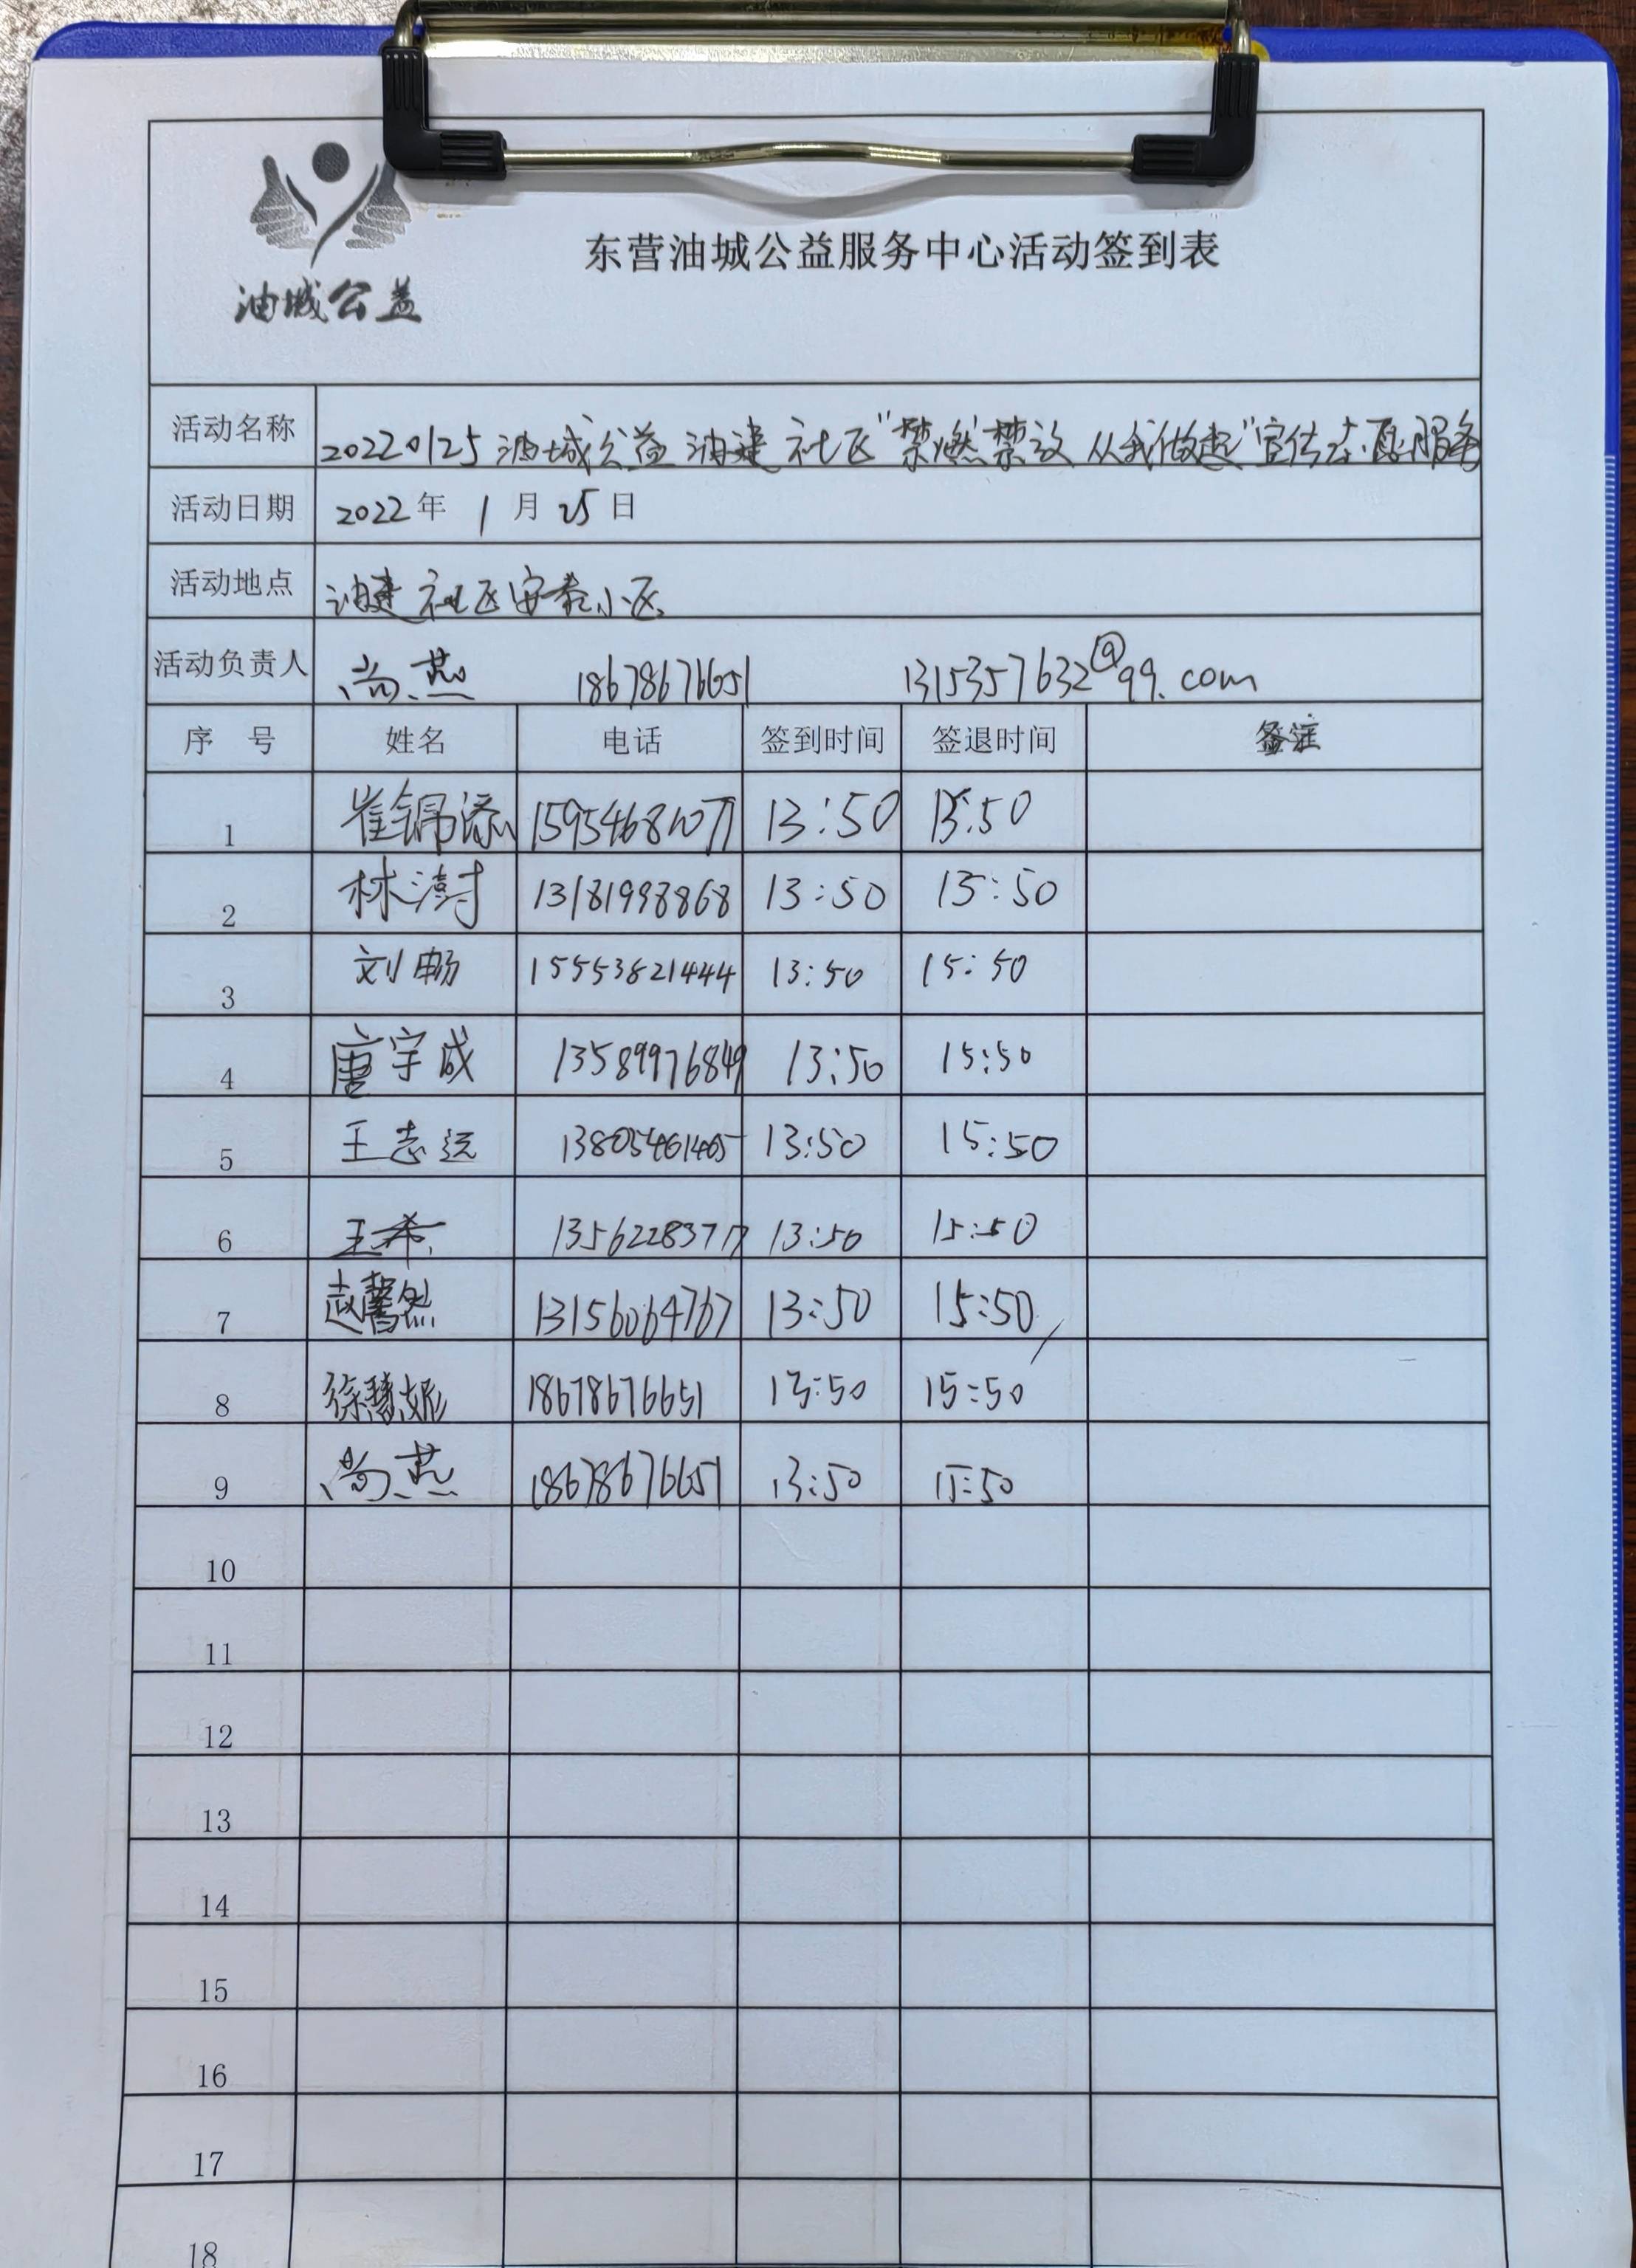 油城公益
东营油城公益服务中心活动签到表
活动名称 20220125油城公益油建社区"禁燃禁放 从我做起"宣传志愿服务
活动日期 2022年 1 月 25 日
活动地点 油建社区安泰小区
活动负责人 尚燕 18678676651 1315357632@qq.com
序 号 姓名 电话 签到时间 签退时间 备注
1 崔锦添 15954681077 13:50 15:50
2 林澍 13181998868 13:50 15:50
3 刘畅 15553821444 13:50 15:50
4 唐宇成 13589976849 13:50 15:50
5 王志远 13805461405 13:50 15:50
6 王希 13562283717 13:50 15:50
7 赵馨然 13156064767 13:50 15:50
8 徐慧妮 18678676651 13:50 15:50
9 尚燕 18678676651 13:50 15:50
10
11
12
13
14
15
16
17
18